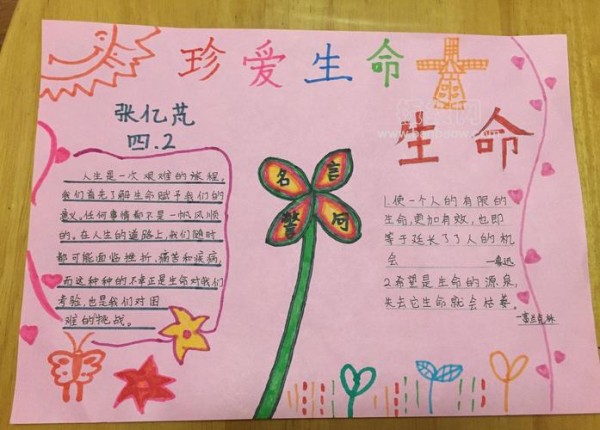 珍爱生命
张亿芃
四.2
生命
人生是一次艰难的旅程。
我们首先了解生命赋予我们的
意义。任何事情都不是一帆风顺
的。在人生的道路上,我们随时
都可能面临挫折、痛苦和疾病,
而这种种的不幸正是生命对我们
考验,也是我们对困
难的挑战。
名言
警句
1.使一个人的有限的
生命,更加有效,也即
等于延长了了人的机
会
—鲁迅
2.希望是生命的源泉,
失去它生命就会枯萎。
—富兰克林